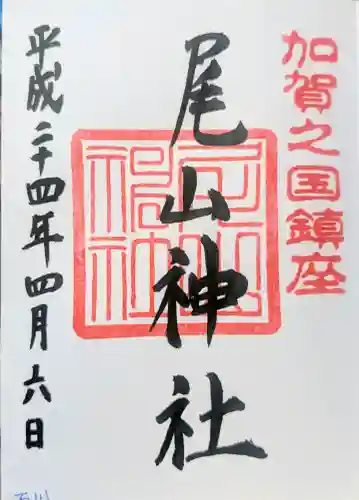 加賀之国鎮座
尾山神社
平成二十四年四月六日
石川